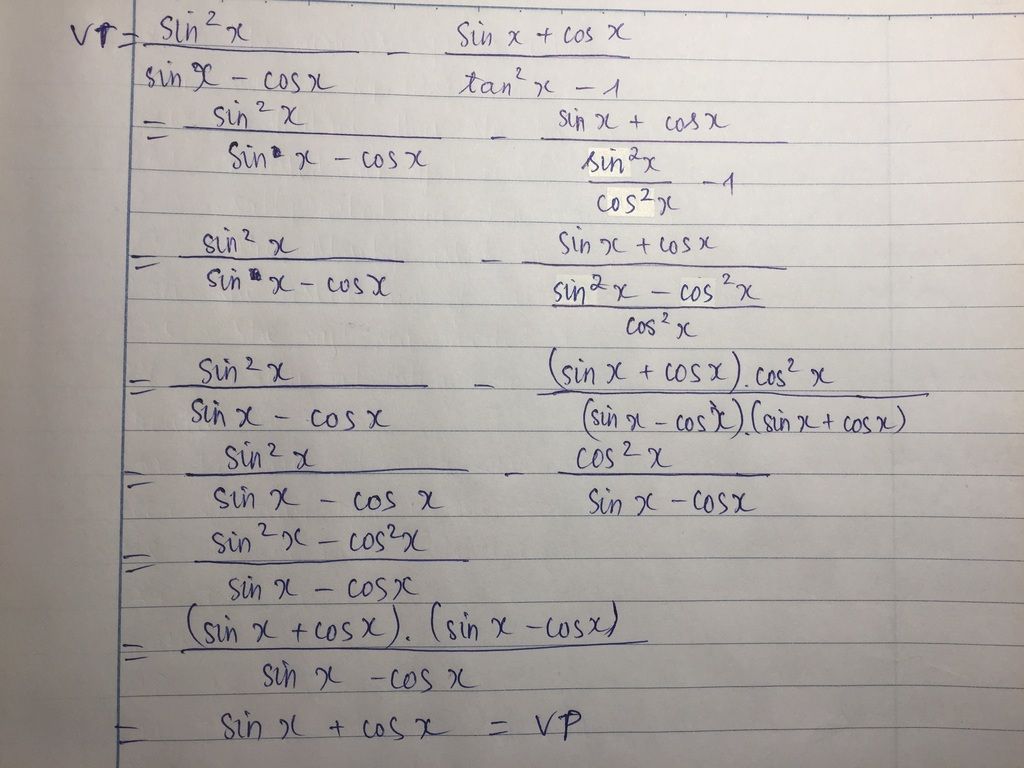 VT = sin²x / (sin x − cosx) − (sin x + cos x) / (tan²x − 1)
= sin²x / (sin x − cosx) − (sin x + cosx) / (sin²x / cos²x − 1)
= sin²x / (sin x − cosx) − (sin x + cosx) / ((sin²x − cos²x) / cos²x)
= sin²x / (sin x − cosx) − (sin x + cosx).cos²x / (sin x − cosx).(sin x + cosx)
= sin²x / (sin x − cos x) − cos²x / (sin x − cosx)
= (sin²x − cos²x) / (sin x − cosx)
= (sin x + cosx).(sin x − cosx) / (sin x − cos x)
= sin x + cos x = VP